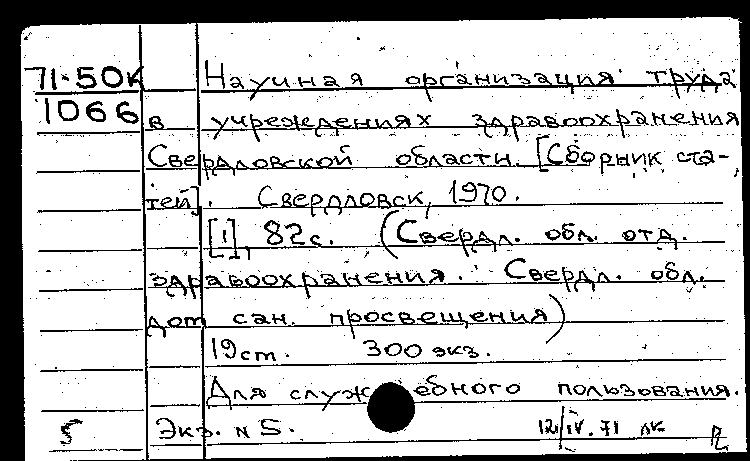 71-50К Научная организация труда
1066 в учреждениях здравоохранения
Свердловской области. [Сборник ста-
тей]. Свердловск, 1970.
[1], 82с. (Свердл. обл. отд.
здравоохранения. Свердл. обл.
дом сан. просвещения)
19см. 300 экз.
Для служебного пользования.
5 Экз. N 5. 12/IV.71